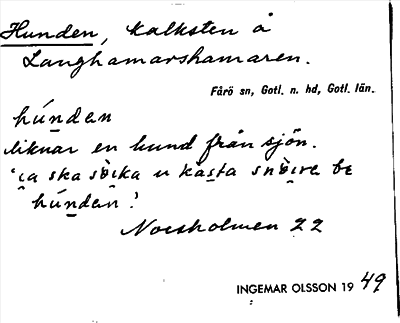 Hunden, kalksten å
Langhamarshamaren.
Fårö sn, Gotl. n. hd, Gotl. län.
húnden
liknar en hund från sjön.
ska kasta be
húnden!
Norsholmen 22
INGEMAR OLSSON 1949